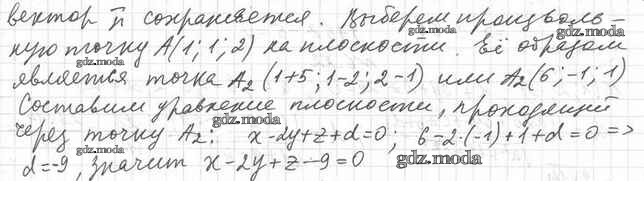 вектор n⃗ сохраняется. Выберем произволь-
ную точку A(1; 1; 2) на плоскости. Её образом
gdz.moda gdz.moda
является точка A₂ (1+5; 1-2; 2-1) или A₂(6; -1; 1)
Составим уравнение плоскости, проходящей
gdz.moda gdz.moda
через точку A₂: x-2y+z+d=0; 6-2·(-1)+1+d=0 =>
gdz.moda
d=-9, значит x-2y+z-9=0
gdz.moda gdz.moda